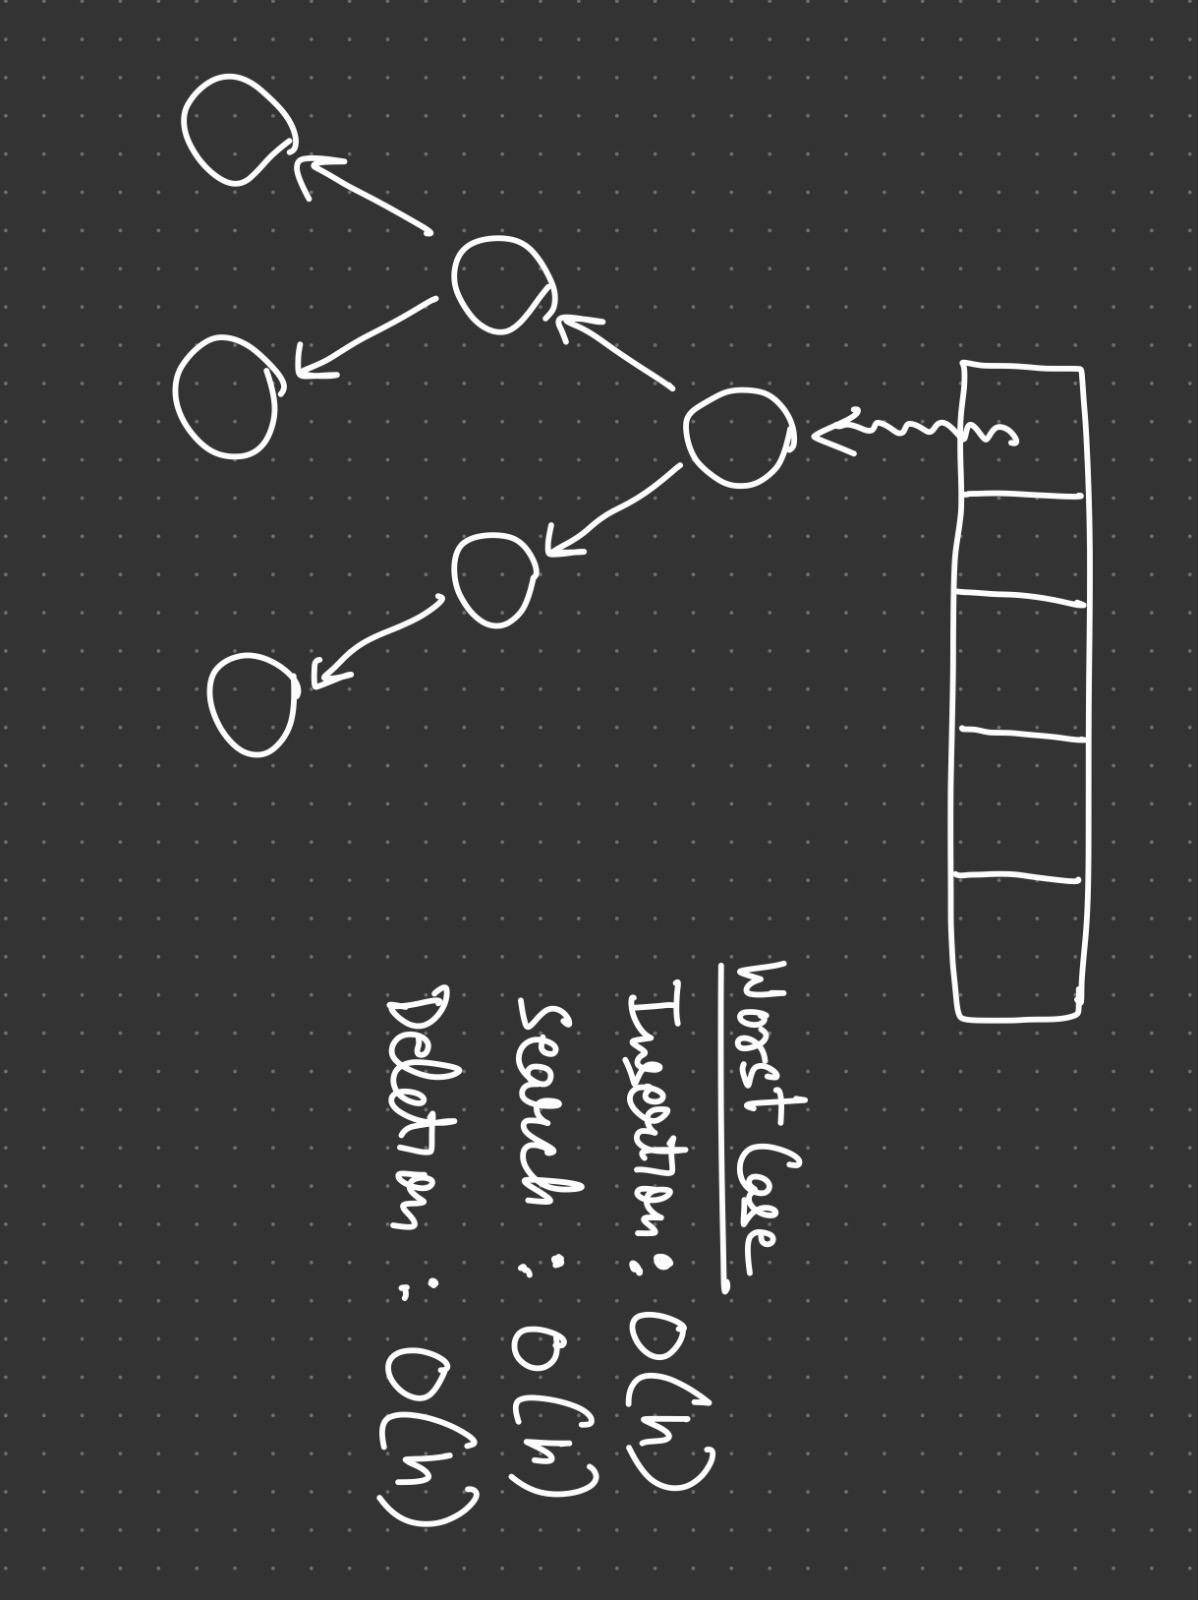 Worst Case
Insertion: O(h)
Search : O(h)
Deletion : O(h)